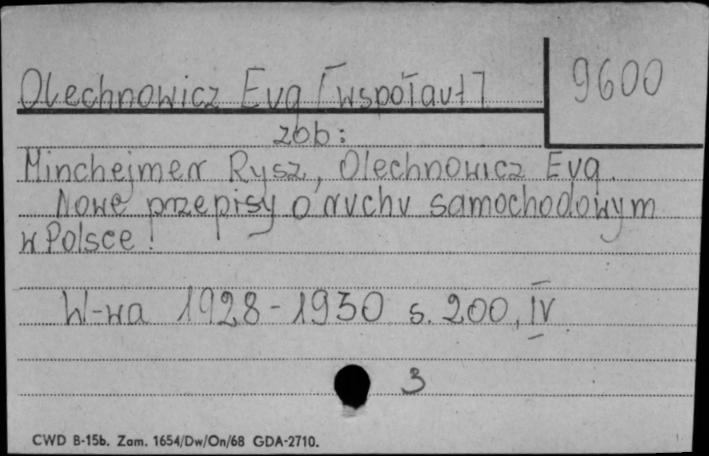 Olechnowicz Eug [współaut]
9600
zob:
Minchejmer Rysz, Olechnowicz Eug.
Nowe przepisy o ruchu samochodowym
w Polsce!
W-wa 1928-1930 s. 200, IV
3
CWD B-15b. Zam. 1654/Dw/On/68 GDA-2710.